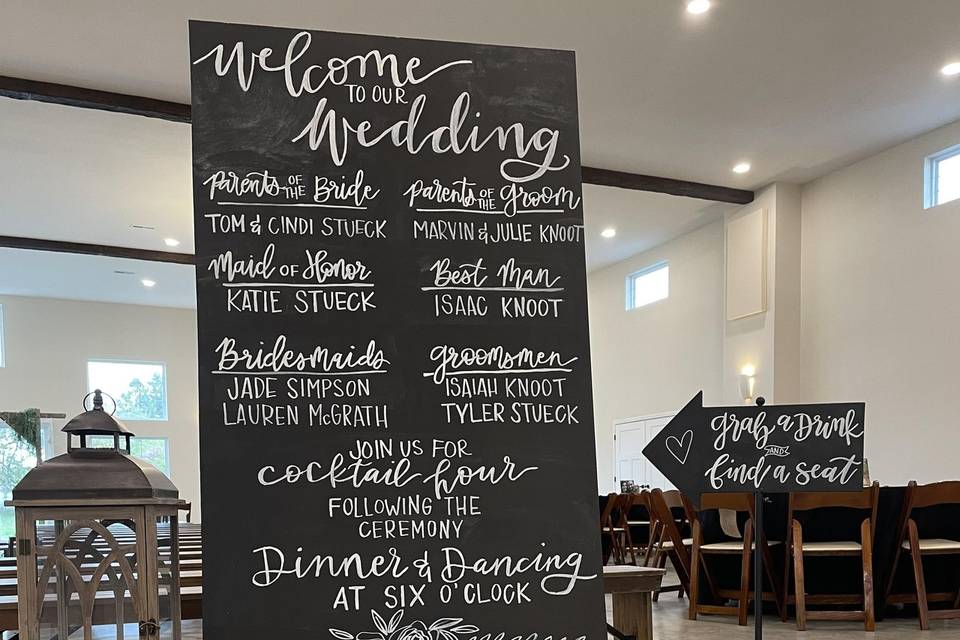 Welcome
TO OUR
Wedding
Parents OF THE Bride
TOM & CINDI STUECK
Parents OF THE Groom
MARVIN & JULIE KNOOT
Maid OF Honor
KATIE STUECK
Best Man
ISAAC KNOOT
Bridesmaids
JADE SIMPSON
LAUREN McGRATH
groomsmen
ISAIAH KNOOT
TYLER STUECK
JOIN US FOR
cocktail hour
FOLLOWING THE
CEREMONY
Dinner & Dancing
AT SIX O'CLOCK
grab a Drink
AND
find a seat